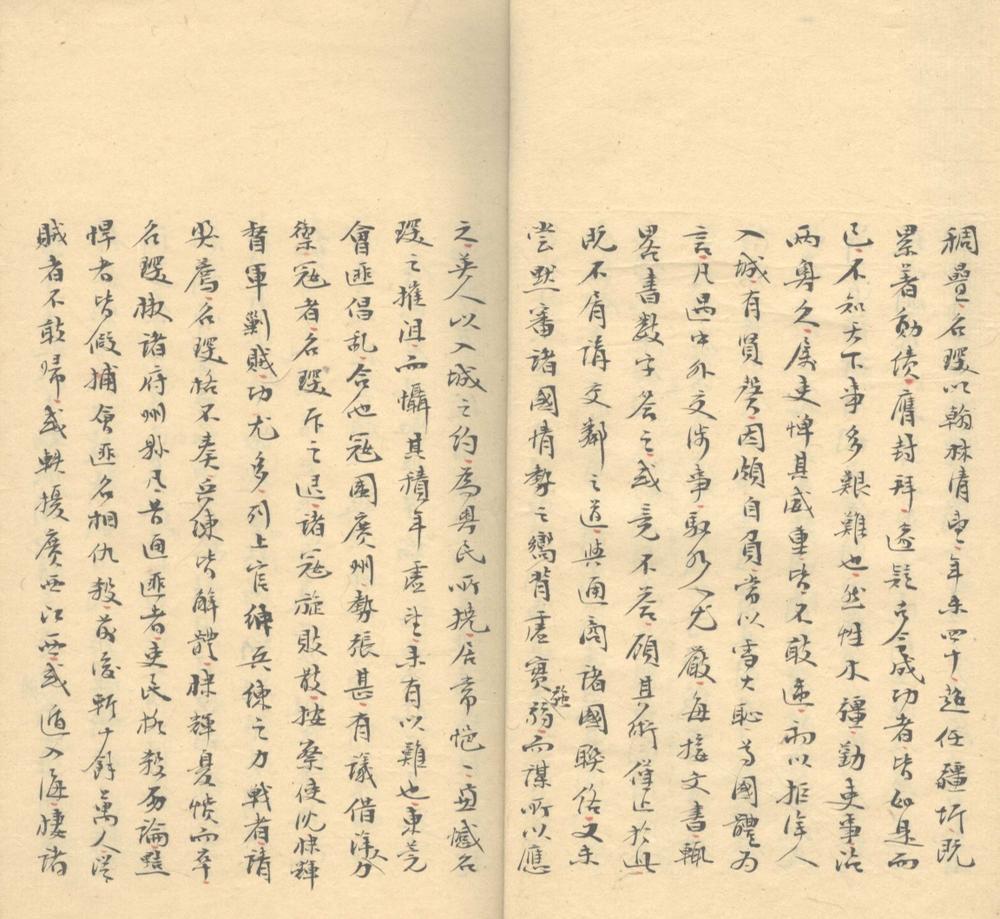 稠疊名琛以翰林清望年未四十超任疆圻既
累著勛績膺封拜遂疑古今成功者皆如是而
已不知天下事多艱難也然性木彊勤吏事治
兩粵久屬吏憚其威重皆不敢違初以拒洋人
入城有賢聲因頗自負常以雪大恥尊國體為
言凡遇中外交涉事馭外人尤嚴每接文書輒
畧書數字荅之或竟不荅顧其術僅止於此
既不屑講交鄰之道與通商諸國聯絡又未
嘗默審諸國情勢之嚮背虛實強弱而謀所以應
之英人以入城之約為粵民所撓居常悒悒憾名
琛之摧沮而懾其積年虛望未有以難也東莞
會匪倡亂合他寇圍廣州勢張甚有議借洋人
禦寇者名琛斥之退諸寇旋敗散按察使沈棣輝
督軍剿賊功尤多列上官紳兵練之力戰者請
獎薦名琛格不奏兵練皆解體棣輝憂憤而卒
名琛檄諸府州縣凡昔通匪者吏民格殺勿論黠
悍者皆假捕會匪名相仇殺前後斬十餘萬人從
賊者不敢歸或軼擾廣西江西或遁入海棲諸